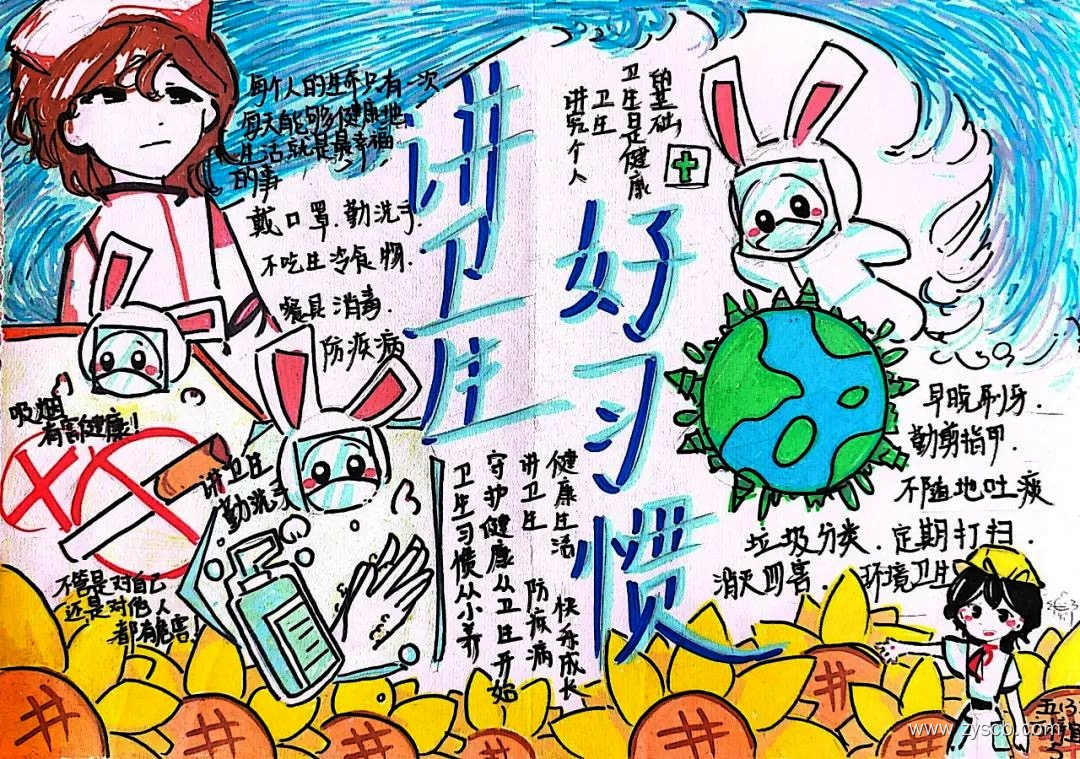 讲卫生
好习惯
每个人的生命只有一次
每天能够健康地
生活就是最幸福
的事
戴口罩.勤洗手.
不吃生冷食物.
餐具消毒.
防疾病
讲究个人
卫生
卫生日是健康
的基础,
吸烟
有害健康!
不管是对自己
还是对他人
都有危害!
讲卫生
勤洗手
卫生习惯从小养
守护健康从卫生开始
讲卫生 防疾病
健康生活 快乐成长
早晚刷牙.
勤剪指甲.
不随地吐痰
垃圾分类.定期打扫.
消灭四害. 环境卫生
www.zyscb.com